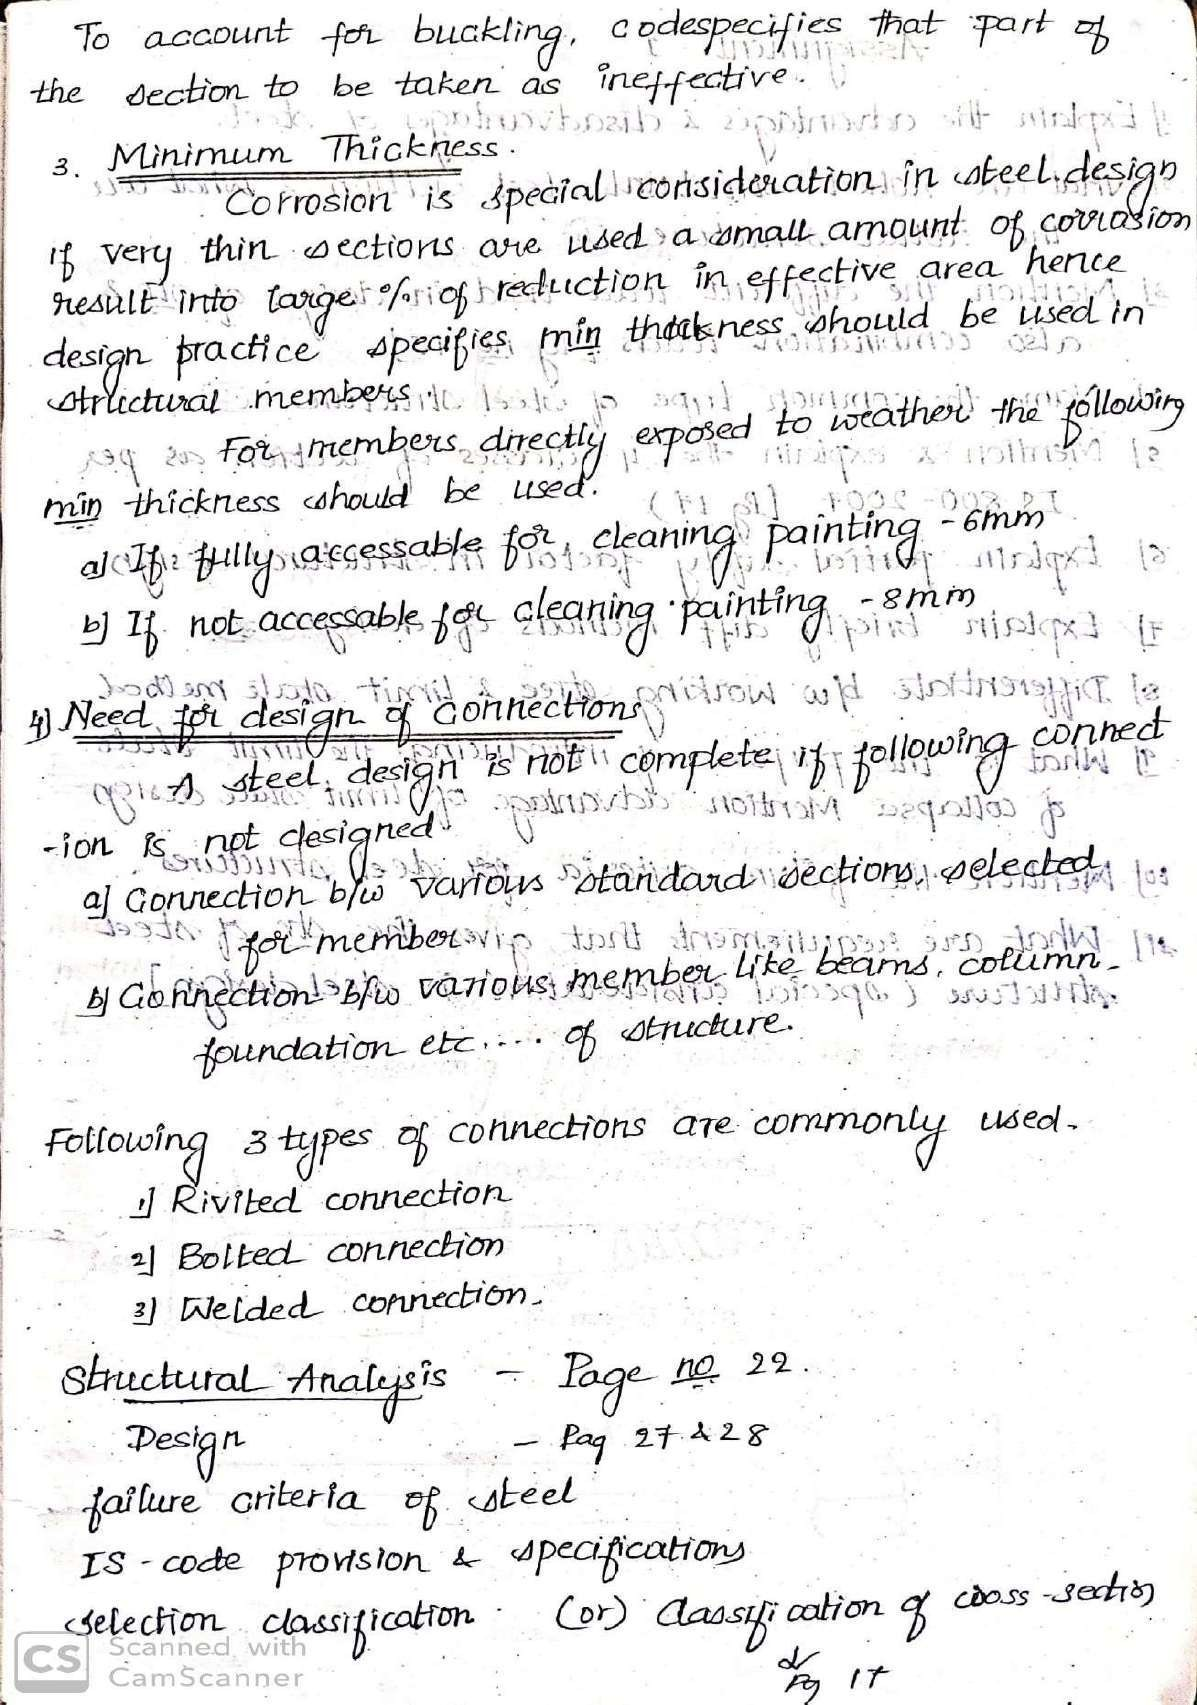 To account for buckling, codespecifies that part of
the section to be taken as ineffective.
3. Minimum Thickness.
Corrosion is special consideration in steel design
if very thin sections are used a small amount of corrasion
result into large % of reduction in effective area hence
design practice specifies min thickness should be used in
structural members.
For members directly exposed to weather the following
min thickness should be used.
a] If fully accessable for cleaning painting - 6mm
b] If not accessable for cleaning painting - 8mm
4) Need for design of connections
A steel design is not complete if following connect
-ion is not designed
a] Connection b/w various standard sections selected
for member
b] Connection b/w various member like beams, column
foundation etc.... of structure.
Following 3 types of connections are commonly used.
1] Rivited connection
2] Bolted connection
3] Welded connection.
Structural Analysis - Page no 22.
Design - Pag 27 & 28
failure criteria of steel
IS - code provision & specifications
selection classification (or) classification of cross-section
Pg 17
CS Scanned with
CamScanner